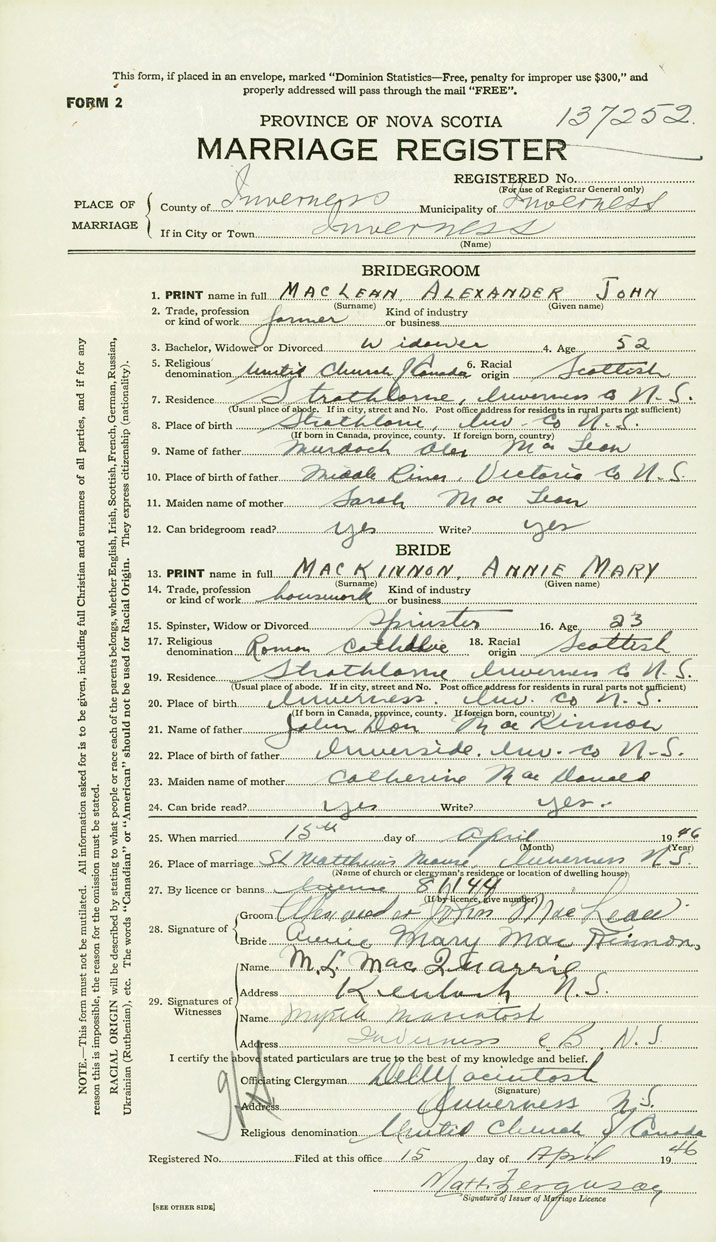 This form, if placed in an envelope, marked "Dominion Statistics—Free, penalty for improper use $300," and
properly addressed will pass through the mail "FREE".
FORM 2
137252.
PROVINCE OF NOVA SCOTIA
MARRIAGE REGISTER
REGISTERED No.
(For use of Registrar General only)
PLACE OF MARRIAGE
County of Inverness Municipality of Inverness
If in City or Town Inverness
(Name)
BRIDEGROOM
1. PRINT name in full MACLEAN, ALEXANDER JOHN
(Surname) (Given name)
2. Trade, profession or kind of work farmer Kind of industry or business
3. Bachelor, Widower or Divorced Widower 4. Age 52
5. Religious denomination United Church of Canada 6. Racial origin Scottish
7. Residence Strathlorne, Inverness Co N.S.
(Usual place of abode. If in city, street and No. Post office address for residents in rural parts not sufficient)
8. Place of birth Strathlorne, Inv. Co N.S.
(If born in Canada, province, county. If foreign born, country)
9. Name of father Murdoch Alex MacLean
10. Place of birth of father Middle River, Victoria Co N.S
11. Maiden name of mother Sarah MacLean
12. Can bridegroom read? yes Write? yes
BRIDE
13. PRINT name in full MACKINNON, ANNIE MARY
(Surname) (Given name)
14. Trade, profession or kind of work housework Kind of industry or business
15. Spinster, Widow or Divorced Spinster 16. Age 23
17. Religious denomination Roman Catholic 18. Racial origin Scottish
19. Residence Strathlorne, Inverness Co N.S.
(Usual place of abode. If in city, street and No. Post office address for residents in rural parts not sufficient)
20. Place of birth Inverness. Inv. Co N.S.
(If born in Canada, province, county. If foreign born, country)
21. Name of father John Dan MacKinnon
22. Place of birth of father Inverside. Inv. Co N.S.
23. Maiden name of mother Catherine MacDonald
24. Can bride read? yes Write? yes.
25. When married 15th day of April 1946
(Month) (Year)
26. Place of marriage St Matthews Manse, Inverness N.S.
(Name of church or clergyman's residence or location of dwelling house)
27. By licence or banns licence 81144
(If by licence, give number)
28. Signature of
Groom Alexander John MacLean
Bride Annie Mary MacKinnon,
29. Signatures of Witnesses
Name M. L. MacQuarrie
Address N.S.
Name Macintosh
Address Inverness C B. N.S.
I certify the above stated particulars are true to the best of my knowledge and belief.
Officiating Clergyman Macintosh
(Signature)
Address Inverness N.S.
Religious denomination United Church of Canada
Registered No. Filed at this office 15 day of April 1946
Matt. Ferguson
Signature of Issuer of Marriage Licence
[SEE OTHER SIDE]
NOTE.—This form must not be mutilated. All information asked for is to be given, including full Christian and surnames of all parties, and if for any
reason this is impossible, the reason for the omission must be stated.
RACIAL ORIGIN will be described by stating to what people or race each of the parents belongs, whether English, Irish, Scottish, French, German, Russian,
Ukrainian (Ruthenian), etc. The words "Canadian" or "American" should not be used for Racial Origin. They express citizenship (nationality).